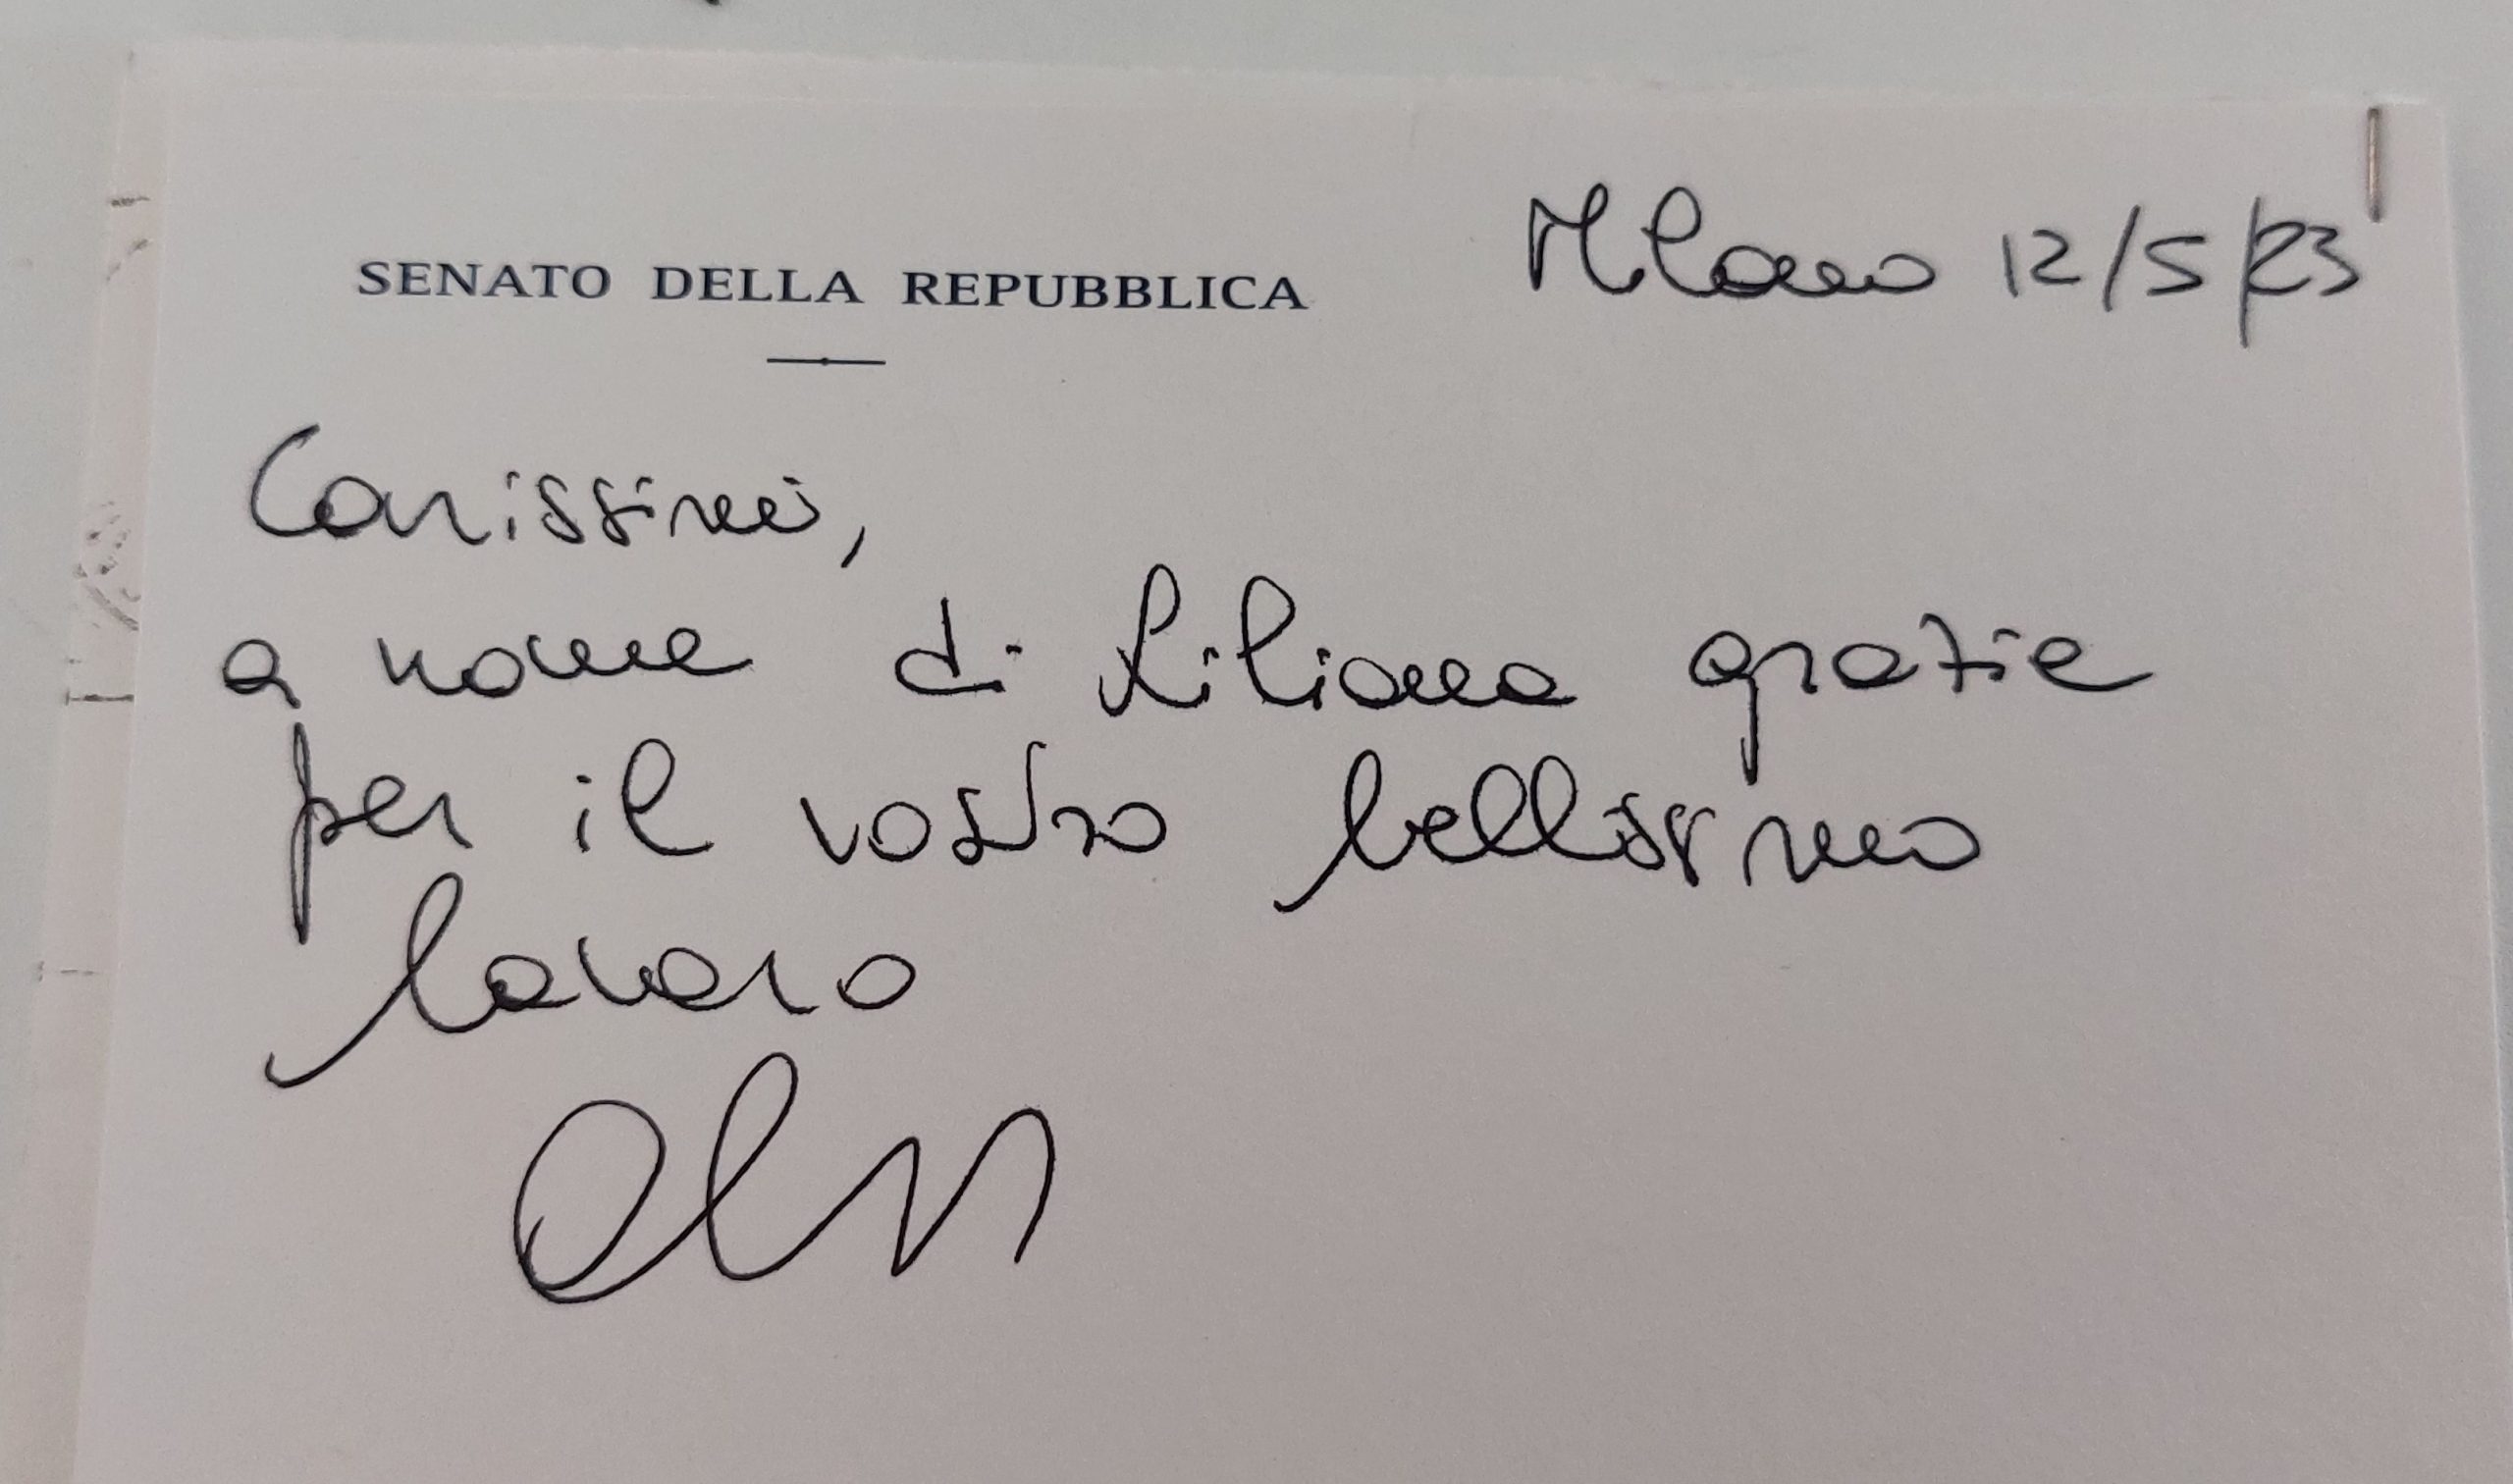 SENATO DELLA REPUBBLICA
Milano 12/5/23
Carissimi,
a nome di Liliana grazie
per il vostro bellissimo
lavoro